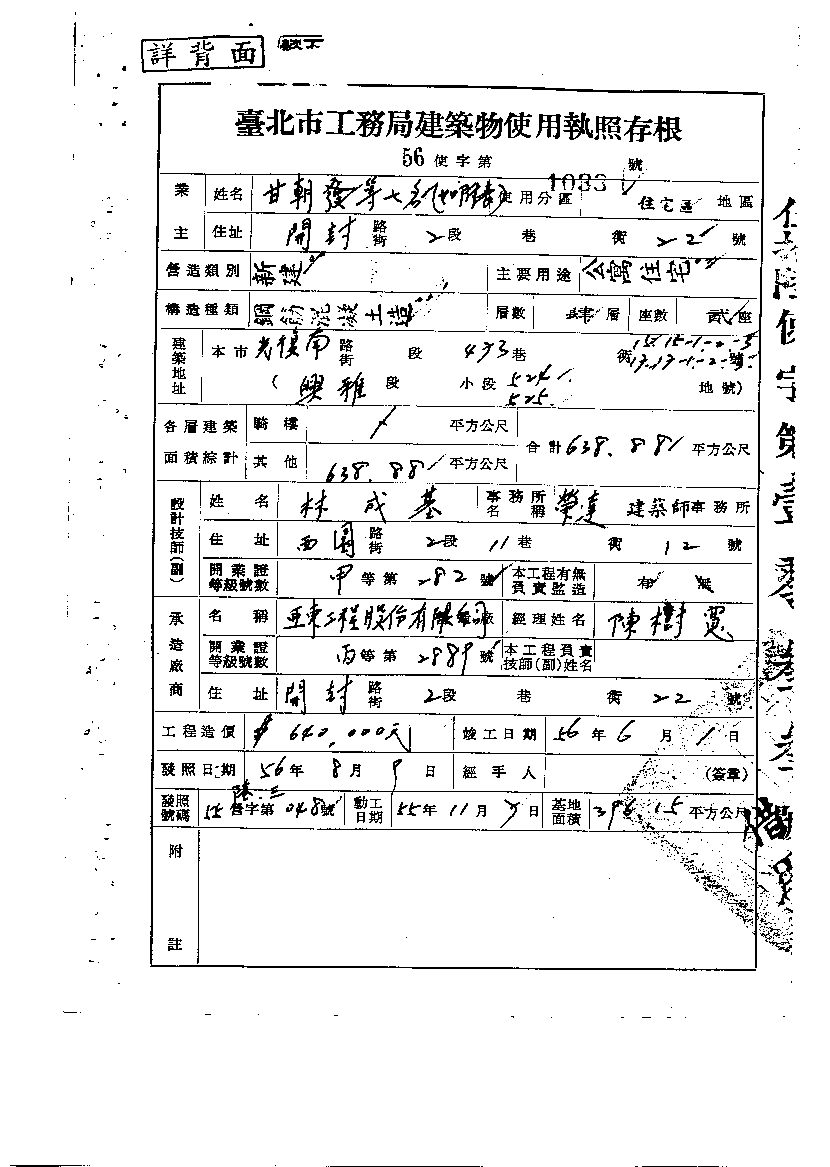 詳背面
臺北市工務局建築物使用執照存根
56使字第1033號
業主 姓名 甘朝發等七名 使用分區 住宅區 地區
住址 開封路街2段 巷 街22號
營造類別 新建 主要用途 公寓住宅
構造種類 鋼筋混凝土造 層數 肆層 座數 貳座
建築地址 本市光復南路街 段 473巷 街 號
(興雅段 小段 524 525 地號)
各層建築面積綜計 騎樓 / 平方公尺 合計638.88平方公尺
其他 638.88平方公尺
設計技師(副) 姓名 林成基 事務所名稱 榮達 建築師事務所
住址 西園路街2段11巷 街12號
開業證等級號數 甲等第282號 本工程有無負責監造 有 無
承造廠商 名稱 亞東工程股份有限公司 廠 經理姓名 陳樹寬
開業證等級號數 丙等第2889號 本工程負責技師(副)姓名
住址 開封路街2段 巷 街22號
工程造價 $640,000元 竣工日期 56年6月1日
發照日期 56年8月9日 經手人 (簽章)
發照號碼 55營字第048號 動工日期 55年11月 日 基地面積 平方公尺
附註
使字第壹零叁叁號